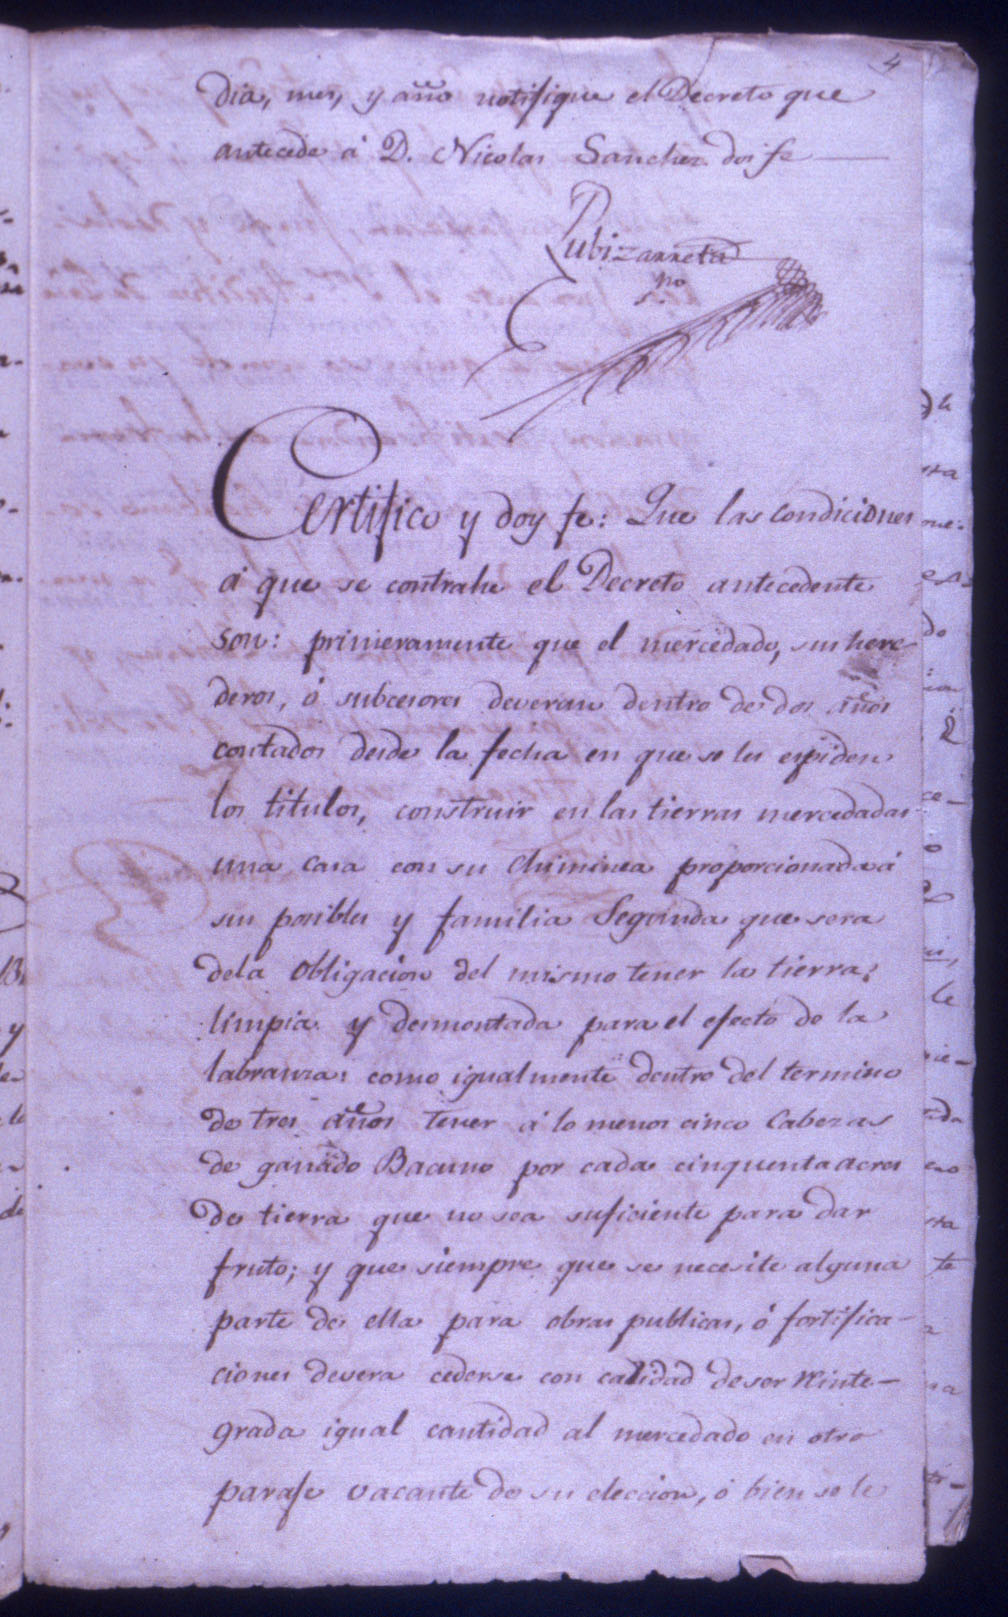 4
dia, mes, y año notifiqué el Decreto que
antecede á D. Nicolas Sanchez doi fe
Zubizarreta
Certifico y doy fe: Que las condiciones
á que se contrahe el Decreto antecedente
son: primeramente que el mercedado, sus here-
deros, ó subcesores deveran dentro de dos años
contados desde la fecha en que se les espiden
los titulos, construir en las tierras mercedadas
una casa con su Chiminea proporcionada á
sus posibles y familia Segunda que sera
dela obligacion del mismo tener la tierra
limpia y desmontada para el efecto de la
labranza: como igualmente dentro del termino
de tres años tener á lo menos cinco Cabezas
de ganado Bacuno por cada cinquenta acres
de tierra que no sea suficiente para dar
fruto; y que siempre que se necesite alguna
parte de ella para obras publicas, ó fortifica-
ciones devera cederse con calidad de ser reinte-
grada igual cantidad al mercedado en otro
paraje vacante de su eleccion, ó bien se le